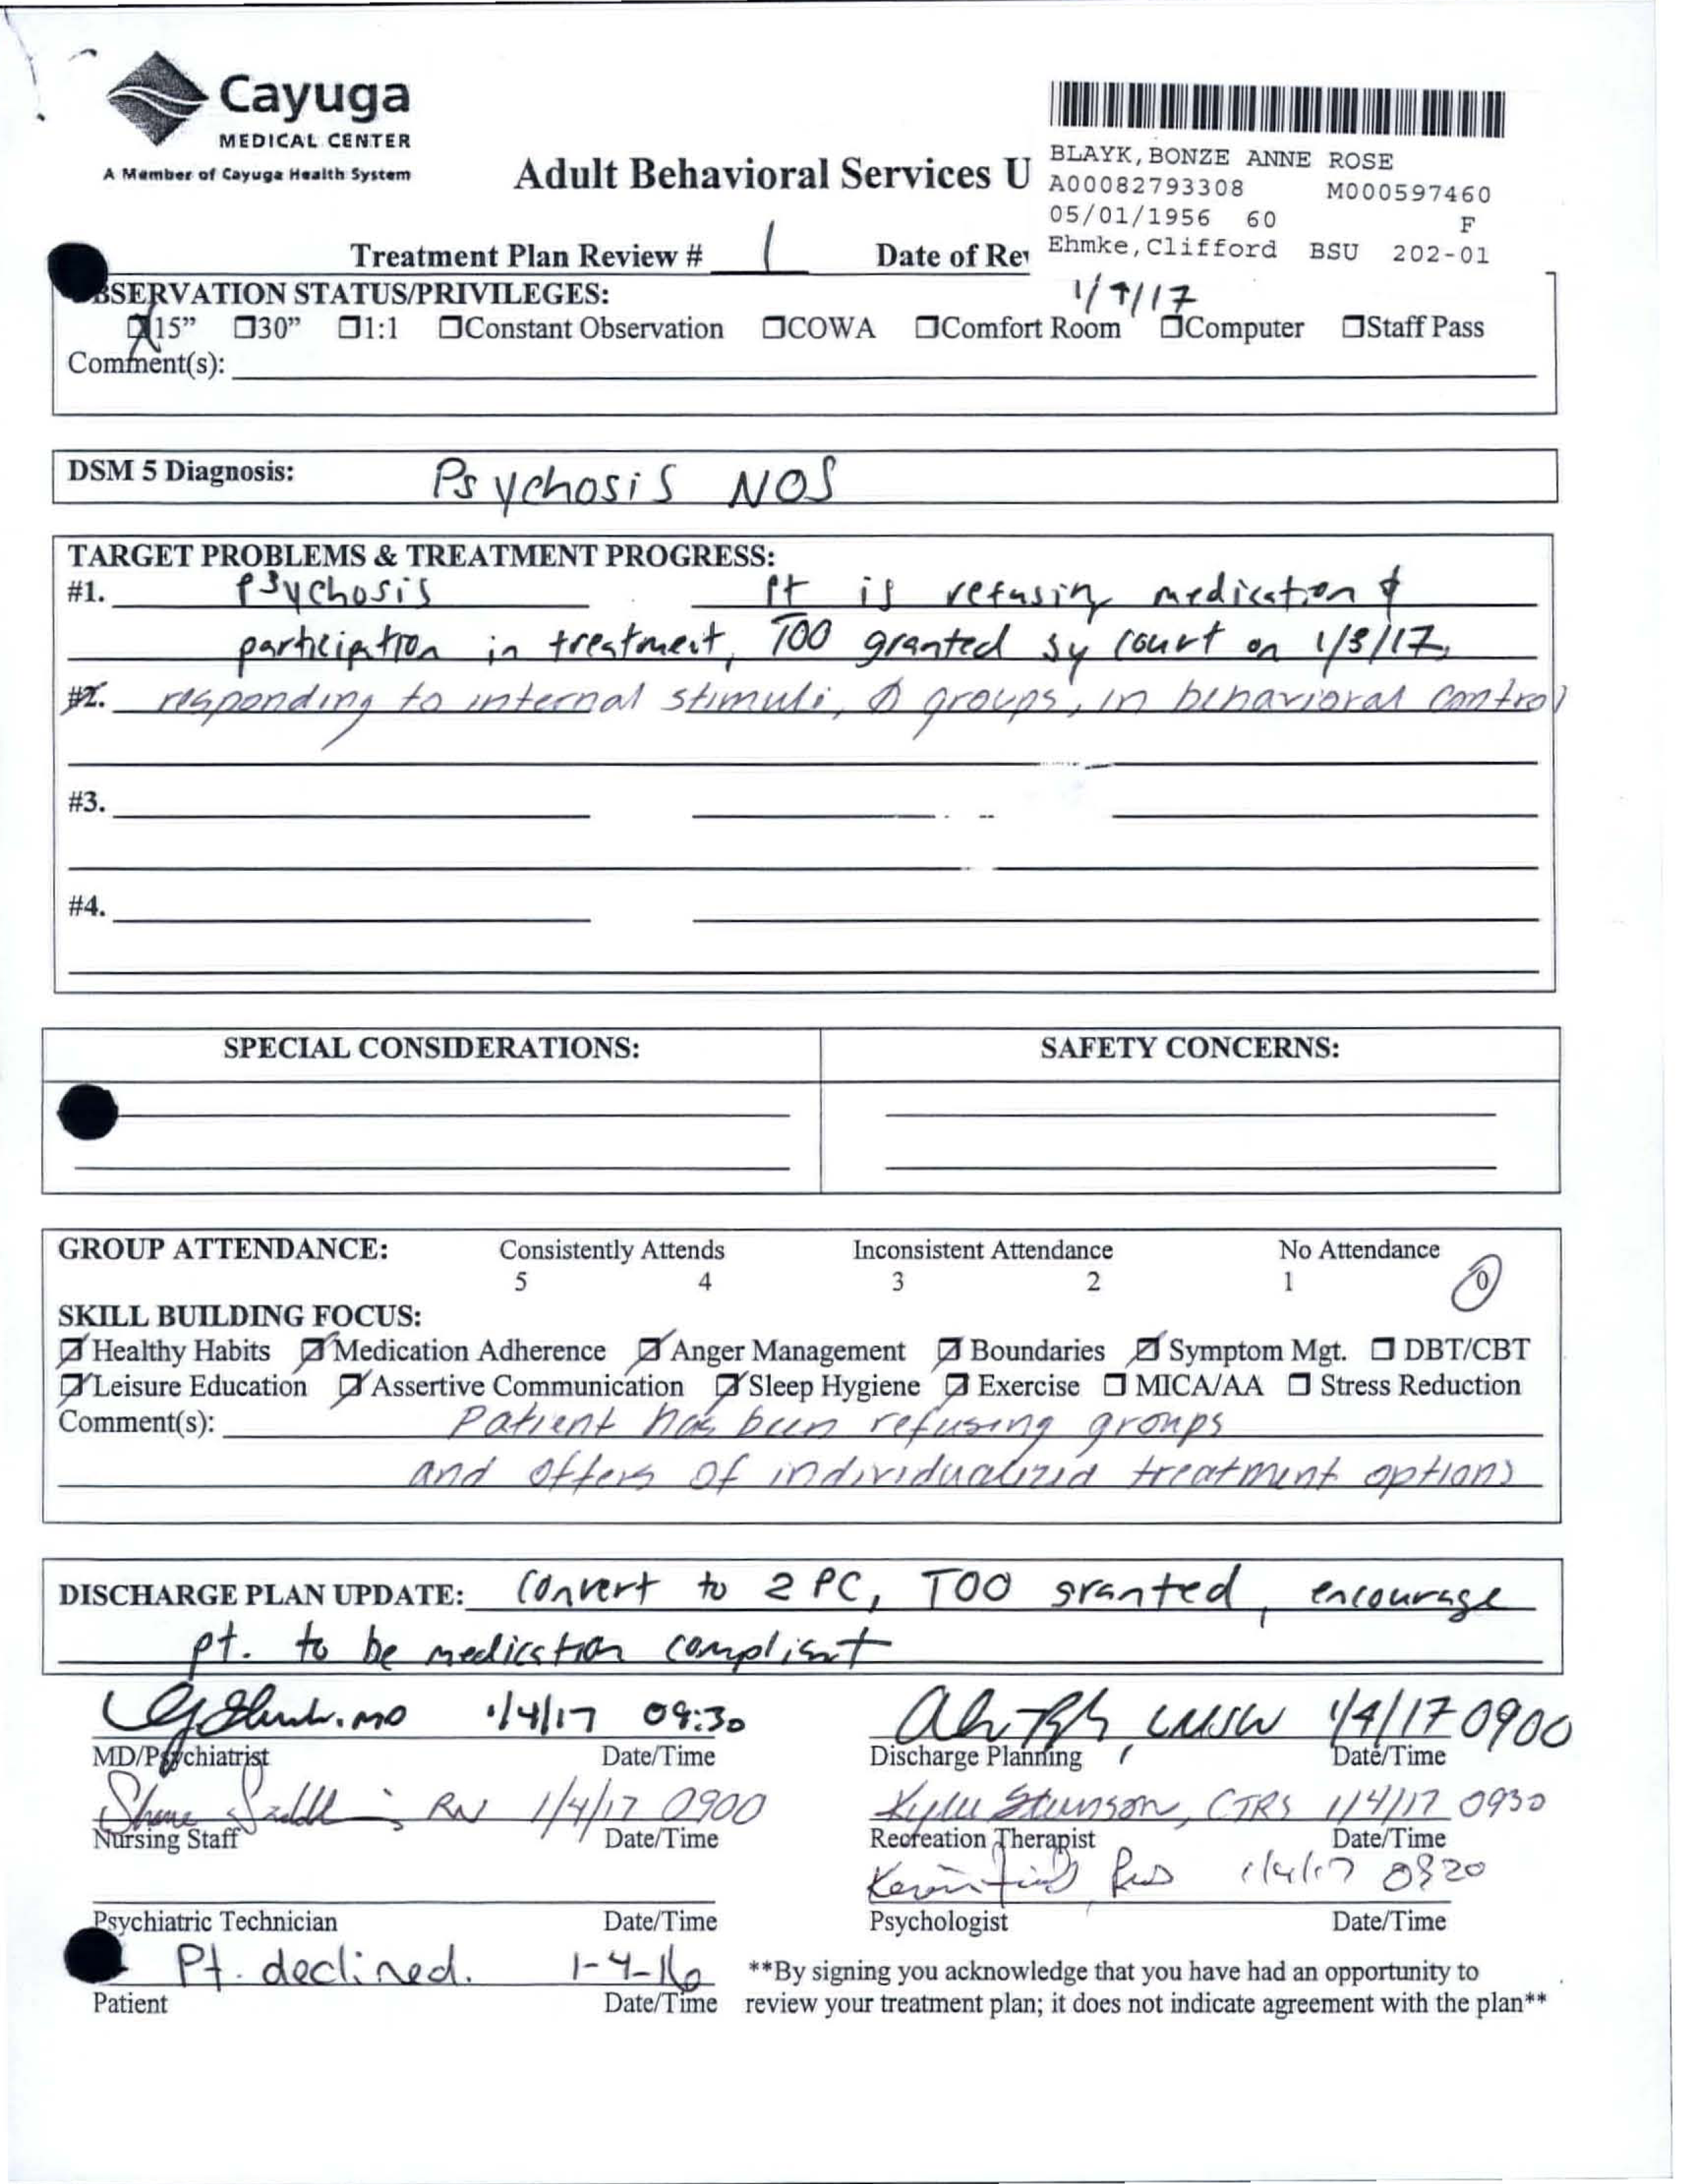 Cayuga
MEDICAL CENTER
A Member of Cayuga Health System
Adult Behavioral Services U
BLAYK,BONZE ANNE ROSE
A00082793308 M000597460
05/01/1956 60 F
Ehmke,Clifford BSU 202-01
Treatment Plan Review # 1 Date of Re
1/4/17
BSERVATION STATUS/PRIVILEGES:
☒15” ☐30” ☐1:1 ☐Constant Observation ☐COWA ☐Comfort Room ☐Computer ☐Staff Pass
Comment(s):
DSM 5 Diagnosis: Psychosis NOS
TARGET PROBLEMS & TREATMENT PROGRESS:
#1. Psychosis Pt is refusing medication &
participation in treatment, TOO granted by court on 1/3/17,
#2. responding to internal stimuli, Ø groups, in behavioral control
#3.
#4.
SPECIAL CONSIDERATIONS: SAFETY CONCERNS:
GROUP ATTENDANCE: Consistently Attends Inconsistent Attendance No Attendance
5 4 3 2 1 0
SKILL BUILDING FOCUS:
☑Healthy Habits ☑Medication Adherence ☑Anger Management ☑Boundaries ☑Symptom Mgt. ☐ DBT/CBT
☑Leisure Education ☑Assertive Communication ☑Sleep Hygiene ☑Exercise ☐ MICA/AA ☐ Stress Reduction
Comment(s): Patient has been refusing groups
and offers of individualized treatment options
DISCHARGE PLAN UPDATE: Convert to 2 PC, TOO granted, encourage
pt. to be medication compliant
MD 1/4/17 09:30 LMSW 1/4/17 0900
MD/Psychiatrist Date/Time Discharge Planning Date/Time
Shane RN 1/4/17 0900 Stunson, CTRS 1/4/17 0930
Nursing Staff Date/Time Recreation Therapist Date/Time
1/4/17
Psychiatric Technician Date/Time Psychologist Date/Time
Pt. declined. 1-4-16 **By signing you acknowledge that you have had an opportunity to
Patient Date/Time review your treatment plan; it does not indicate agreement with the plan**